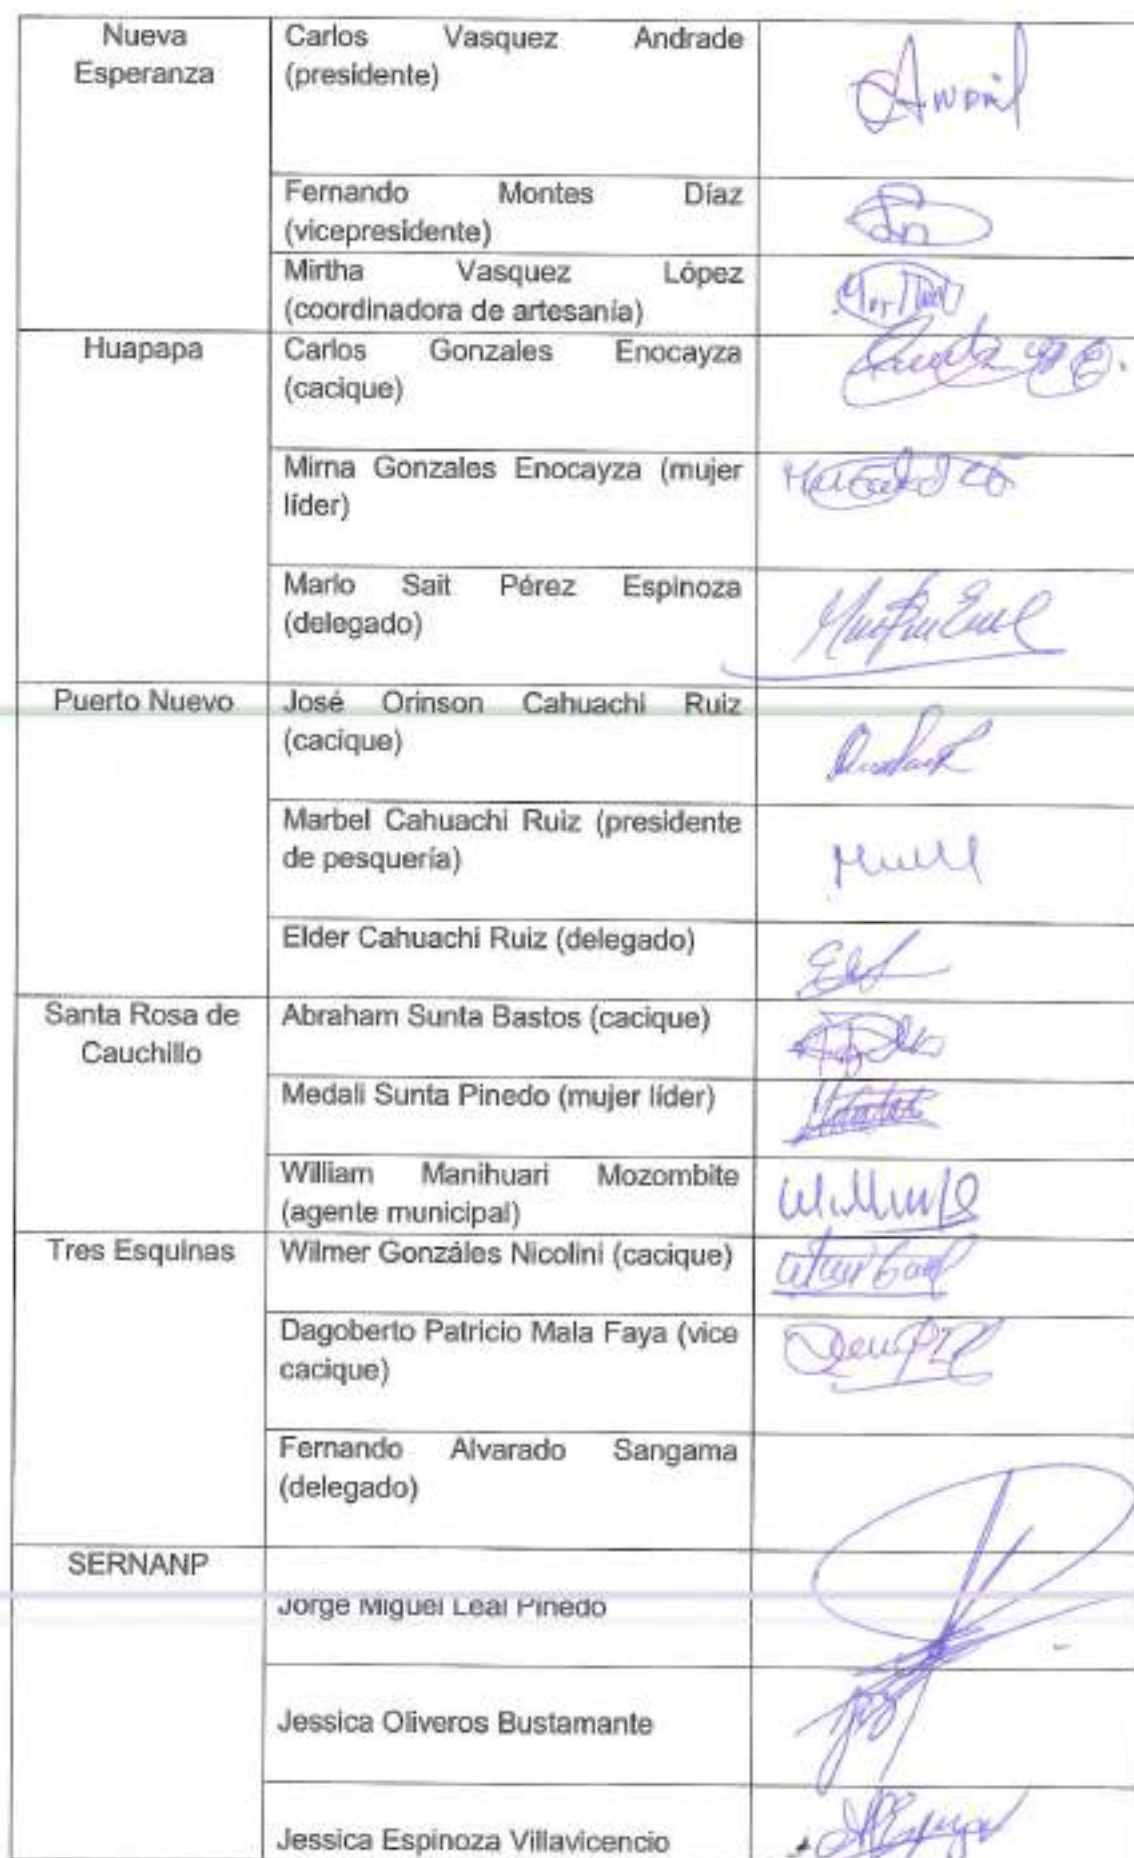 Nueva
Esperanza
Carlos Vasquez Andrade
(presidente)
Fernando Montes Díaz
(vicepresidente)
Mirtha Vasquez López
(coordinadora de artesanía)
Huapapa
Carlos Gonzales Enocayza
(cacique)
Mirna Gonzales Enocayza (mujer
líder)
Mario Sait Pérez Espinoza
(delegado)
Puerto Nuevo
José Orinson Cahuachi Ruiz
(cacique)
Marbel Cahuachi Ruiz (presidente
de pesquería)
Elder Cahuachi Ruiz (delegado)
Santa Rosa de
Cauchillo
Abraham Sunta Bastos (cacique)
Medali Sunta Pinedo (mujer líder)
William Manihuari Mozombite
(agente municipal)
Tres Esquinas
Wilmer Gonzáles Nicolini (cacique)
Dagoberto Patricio Mala Faya (vice
cacique)
Fernando Alvarado Sangama
(delegado)
SERNANP
Jorge Miguel Leal Pinedo
Jessica Oliveros Bustamante
Jessica Espinoza Villavicencio